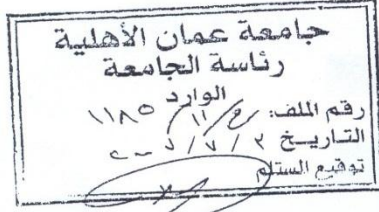 جامعة عمان الأهلية
رئاسة الجامعة
الوارد
رقم الملف: ١١ / ١١٨٥
التاريخ ٢ / ٧ /
توقيع المستلم